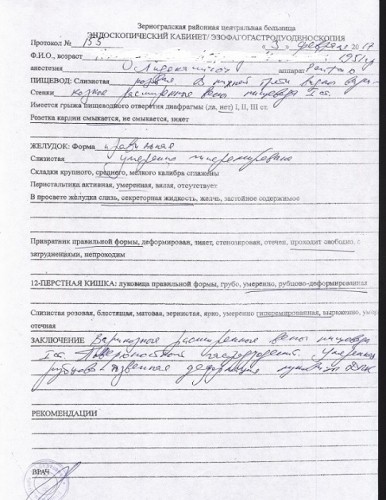 Зерноградская районная центральная больница
ЭНДОСКОПИЧЕСКИЙ КАБИНЕТ/ ЭЗОФАГОГАСТРОДУОДЕНОСКОПИЯ
Протокол № 155 3 февраля
Ф.И.О., возраст 1951г
анестезия аппарат Pentax
ПИЩЕВОД: Слизистая розовая В нижней трети видно
Стенки расширенные вены пищевода I ст.
Имеется грыжа пищеводного отверстия диафрагмы (да, нет) I, II, III ст.
Розетка кардии смыкается, не смыкается, зияет
ЖЕЛУДОК: Форма правильная
Слизистая умеренно гиперемирована
Складки крупного, среднего, мелкого калибра сглажены
Перистальтика активная, умеренная, вялая, отсутствует
В просвете желудка слизь, секреторная жидкость, желчь, застойное содержимое
Привратник правильной формы, деформирован, зияет, стенозирован, отечен, проходит свободно, с
затруднениями, непроходим
12-ПЕРСТНАЯ КИШКА: луковица правильной формы, грубо, умеренно, рубцово-деформированная
Слизистая розовая, блестящая, матовая, зернистая, ярко, умеренно гиперемированная, выраженно, умеренно
отечная
ЗАКЛЮЧЕНИЕ Варикозное расширение вены пищевода
I ст. Поверхностный гастродуоденит. Умеренная
рубцово-язвенная деформация луковицы ДПК
РЕКОМЕНДАЦИИ
ВРАЧ